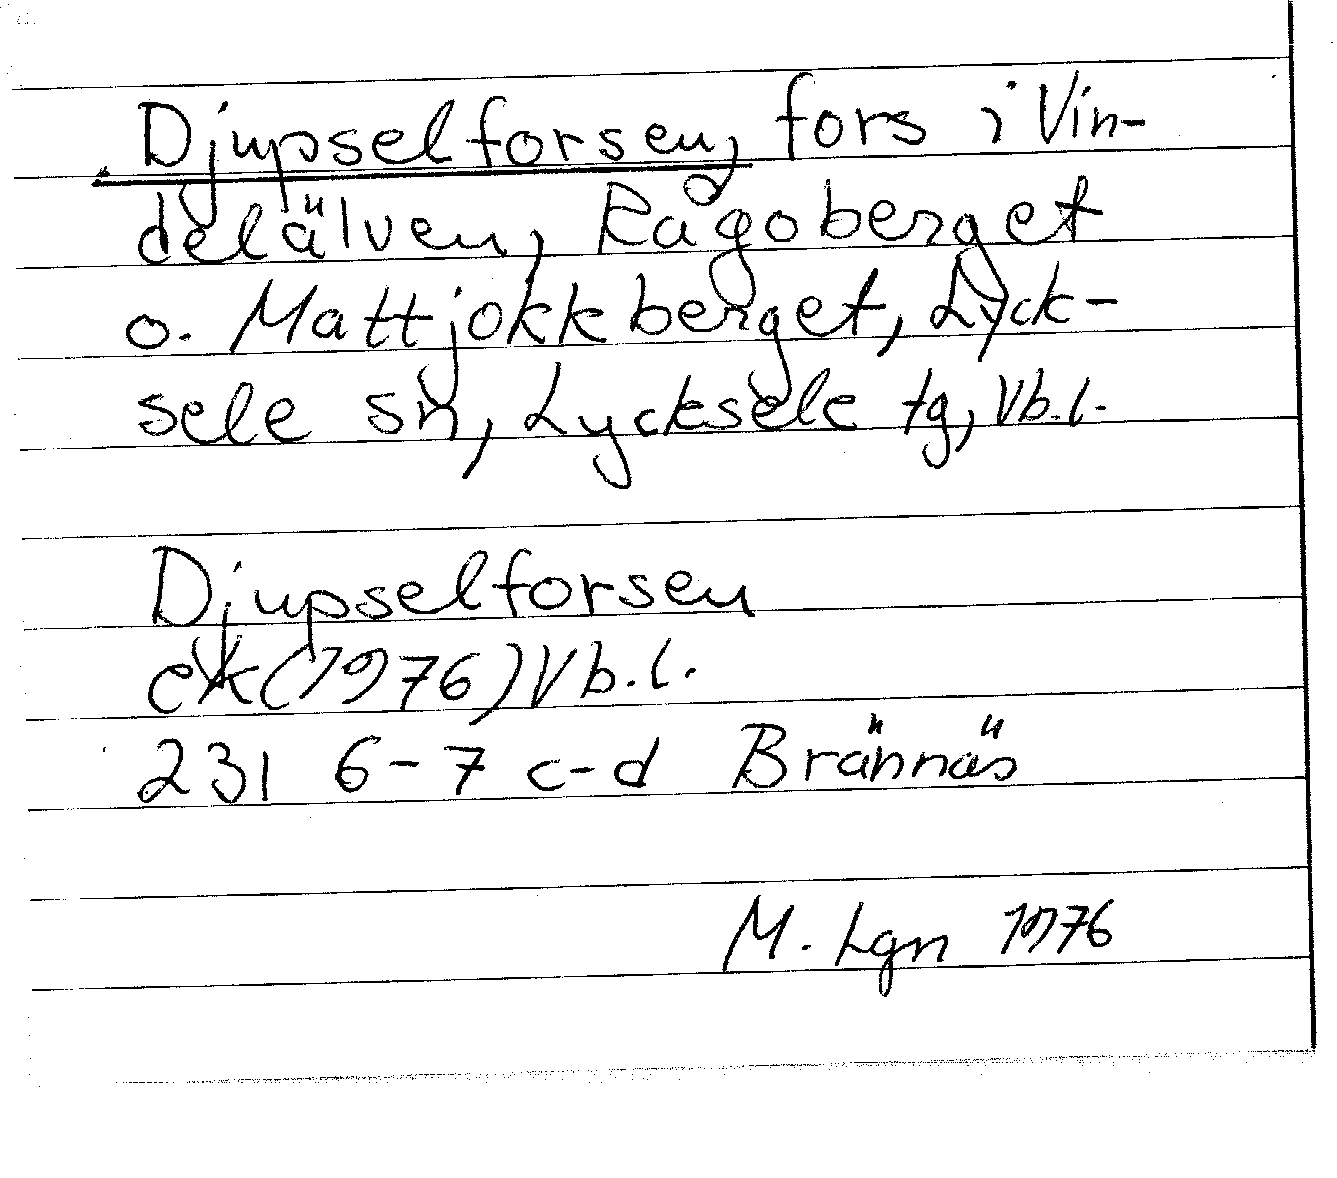 Djupselforsen, fors i Vin-
delälven, Rågoberget
o. Mattjokkberget, Lyck-
sele sn, Lycksele tg, Vb.l.
Djupselforsen
ek(1976)Vb.l.
231 6-7 c-d Brännäs
M. Lgn 1976